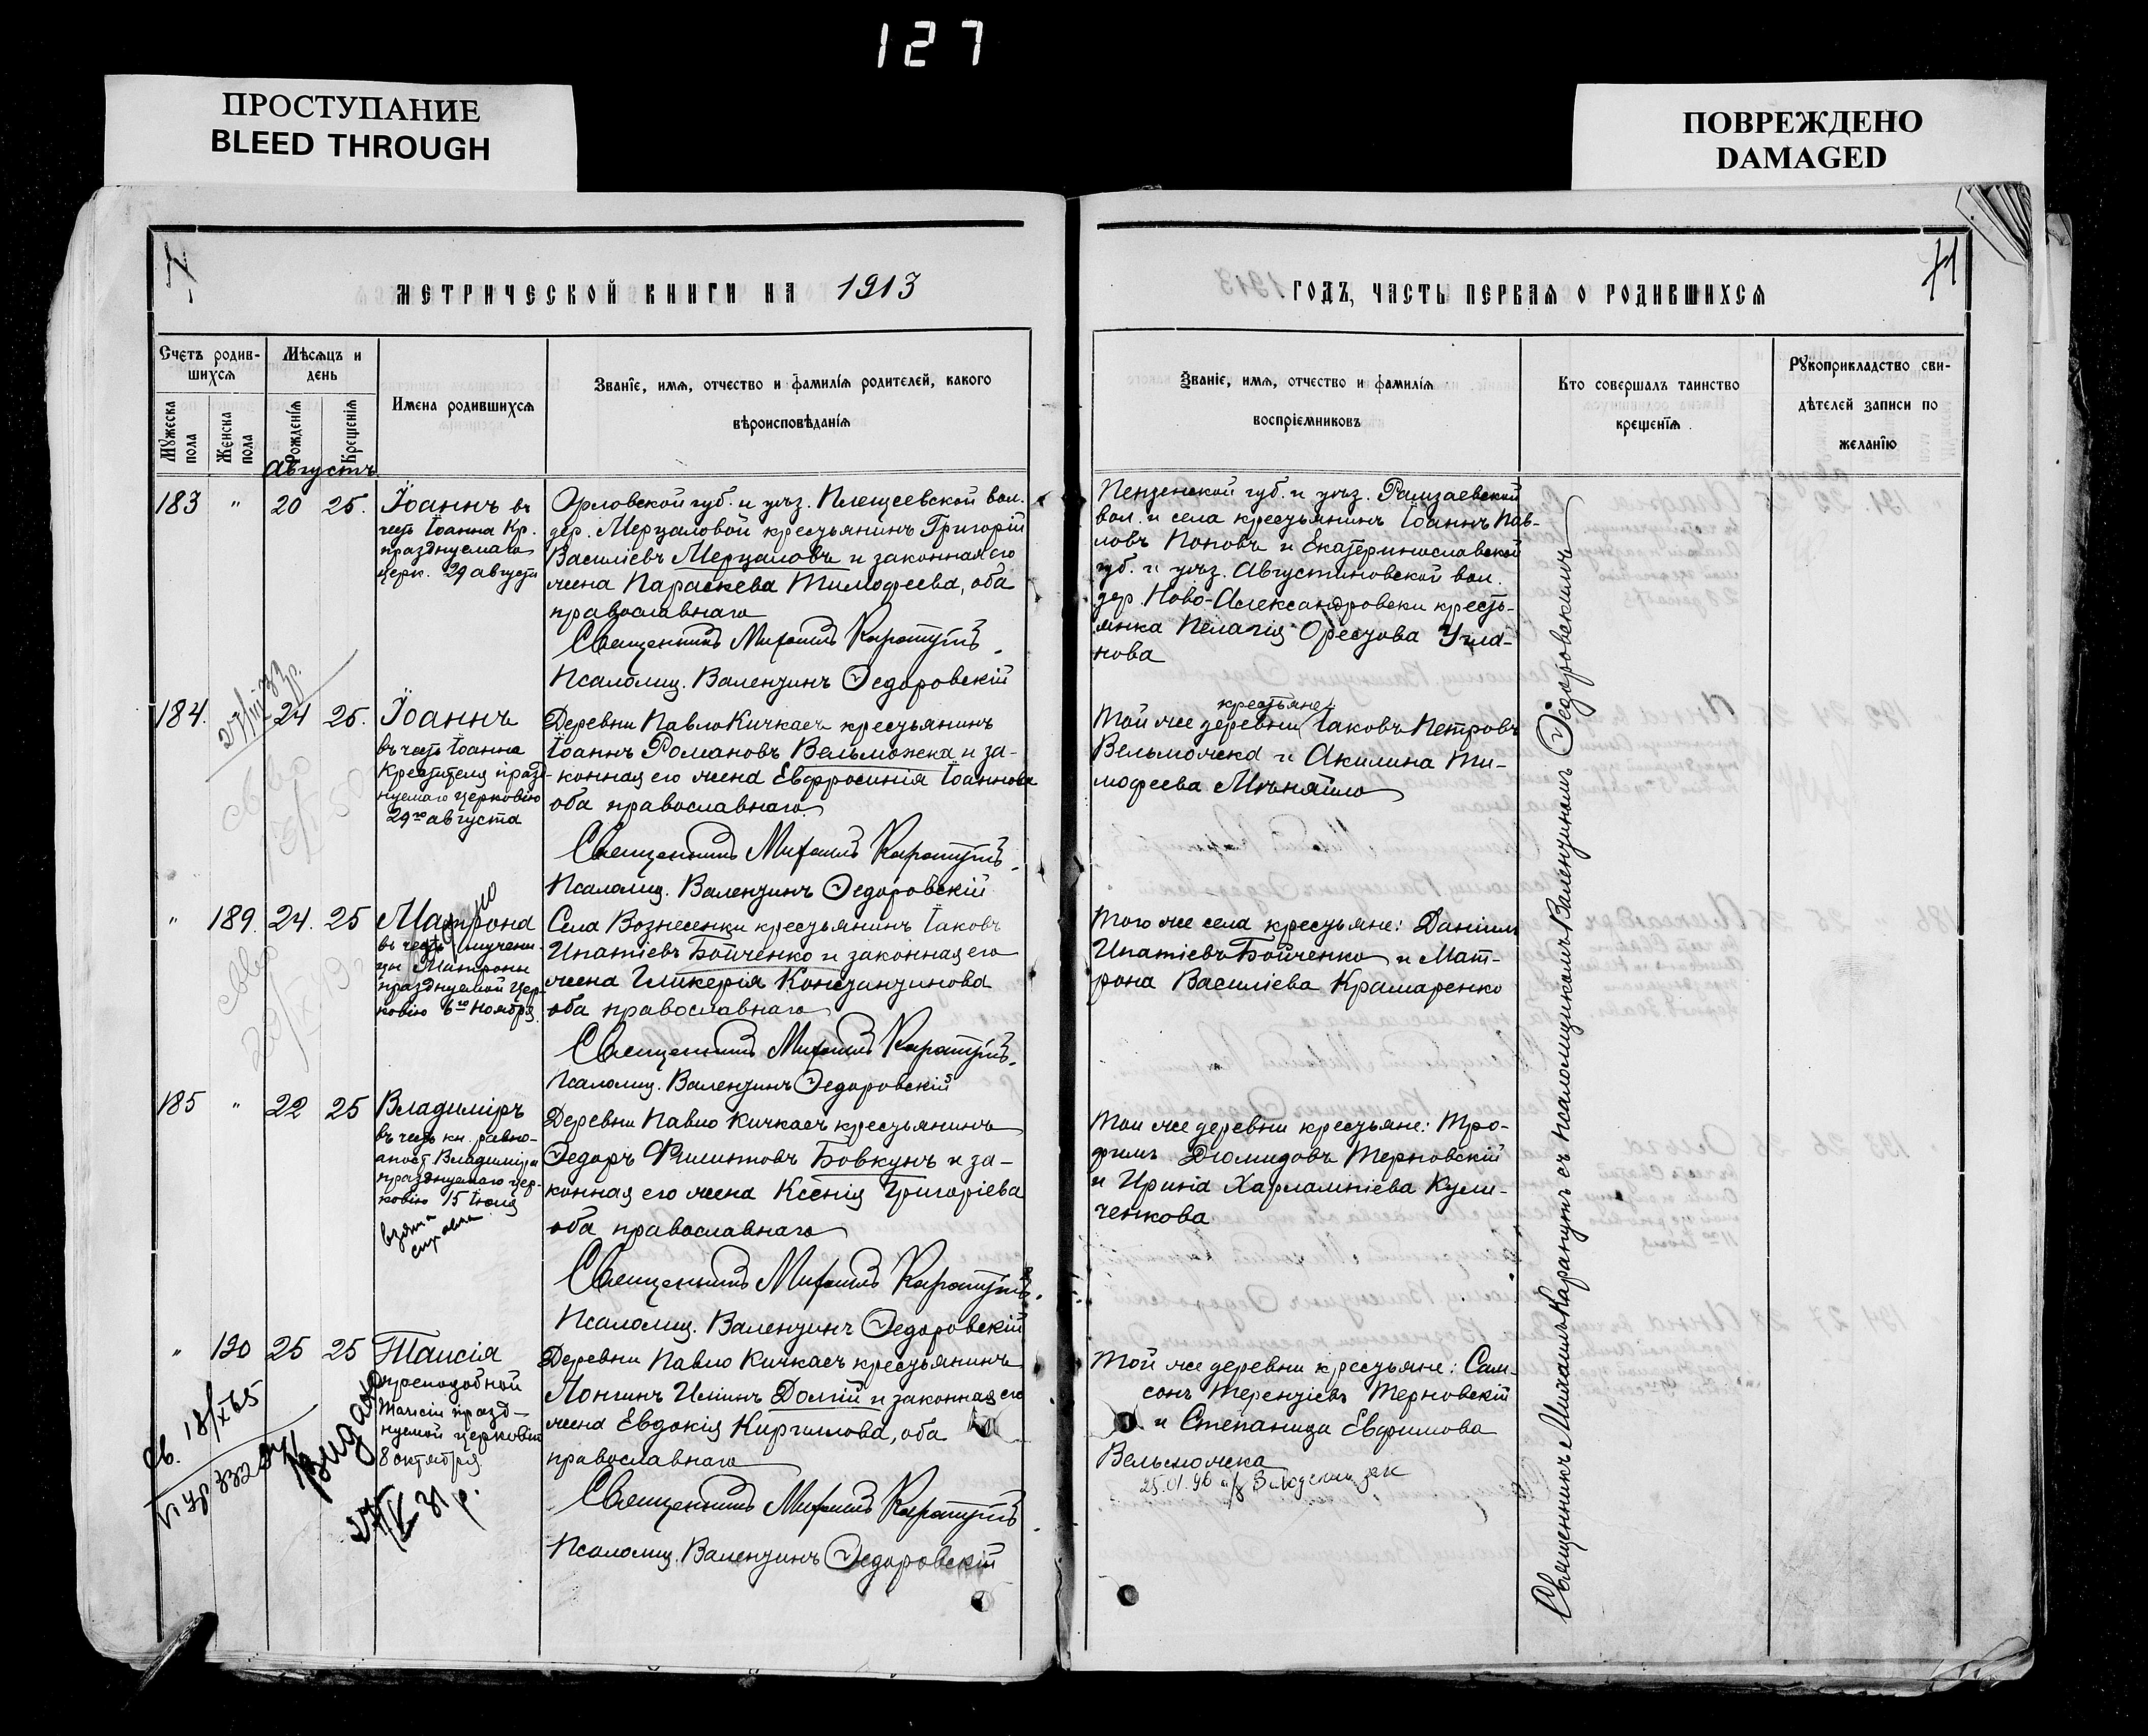 127
ПРОСТУПАНИЕ
BLEED THROUGH
ПОВРЕЖДЕНО
DAMAGED
МЕТРИЧЕСКОЙ КНИГИ НА 1913
ГОДЪ, ЧАСТЬ ПЕРВАЯ О РОДИВШИХСЯ
Счетъ родив-
шихся
Мужеска пола
Женска пола
Мѣсяцъ и
день
Рожденія
Крещенія
Августъ
Имена родившихся
Званіе, имя, отчество и фамилія родителей, какого
вѣроисповѣданія
Званіе, имя, отчество и фамилія
воспріемниковъ
Кто совершалъ таинство
крещенія
Рукоприкладство сви-
дѣтелей записи по
желанію
183 " 20 25.
Іоаннъ въ
честь Іоанна Кр.
празднуемаго
церк. 29 августа
Орловской губ. и уѣз. Плещеевской вол.
дер. Мерцаловой крестьянинъ Григорій
Василіевъ Мерцаловъ и законная его
жена Параскева Тимофеева, оба
православнаго
Священникъ Михаилъ Карапутъ
Псаломщ. Валентинъ Ѳедоровскій
Пензенской губ. и уѣз. Рамзаевской
вол. и села крестьянинъ Іоаннъ Пав-
ловъ Поповъ и Екатеринославской
губ. и уѣз. Августиновской вол.
дер. Ново-Александровки кресть-
янка Пелагія Орестова Угла-
нова
27/III 33 р.
184. 24 25.
Іоаннъ
въ честь Іоанна
Крестителя празд-
нуемаго церковію
29го августа
Деревни Павло Кичкаса крестьянинъ
Іоаннъ Романовъ Вельможка и за-
конная его жена Евфросинія Іоаннова
оба православнаго
Священникъ Михаилъ Карапутъ
Псаломщ. Валентинъ Ѳедоровскій
крестьяне
Той же деревни Іаковъ Петровъ
Вельможка и Акилина Ти-
мофеева Мѣняйло
" 189. 24. 25
Матрона
въ честь мучени-
цы Матроны
празднуемой цер-
ковію 6го Ноября
Села Вознесенки крестьянинъ Іаковъ
Ипатіевъ Бойченко и законная его
жена Гликерія Константинова
оба православнаго
Священникъ Михаилъ Карапутъ
Псаломщ. Валентинъ Ѳедоровскій
Того же села крестьяне: Даніилъ
Ипатіевъ Бойченко и Мат-
рона Василіева Крамаренко
185 " 22 25
Владиміръ
въ честь кн. равно-
апост. Владиміра
празднуемаго цер-
ковію 15 Іюля
взята
справка
Деревни Павло Кичкасъ крестьянинъ
Ѳедоръ Филиповъ Бовкунъ и за-
конная его жена Ксенія Григоріева
оба православнаго
Священникъ Михаилъ Карапутъ
Псаломщ. Валентинъ Ѳедоровскій
Той же деревни крестьяне: Тро-
фимъ Діомидовъ Терновскій
и Ирина Харлампіева Кули-
ченкова
" 190 25 25
Таисія
преподобной
Таисіи празд-
нуемой церковію
8 октября
Деревни Павло Кичкасъ крестьянинъ
Лонгинъ Илiинъ Долгій и законная его
жена Евдокія Кириллова, оба
православнаго
Священникъ Михаилъ Карапутъ
Псаломщ. Валентинъ Ѳедоровскій
Той же деревни крестьяне: Сам-
сонъ Терентіевъ Терновскій
и Степанида Евфимова
Вельможка
св. 18/X 65
Видано
Священникъ Михаилъ Карапутъ съ псаломщикомъ Валентиномъ Ѳедоровскимъ